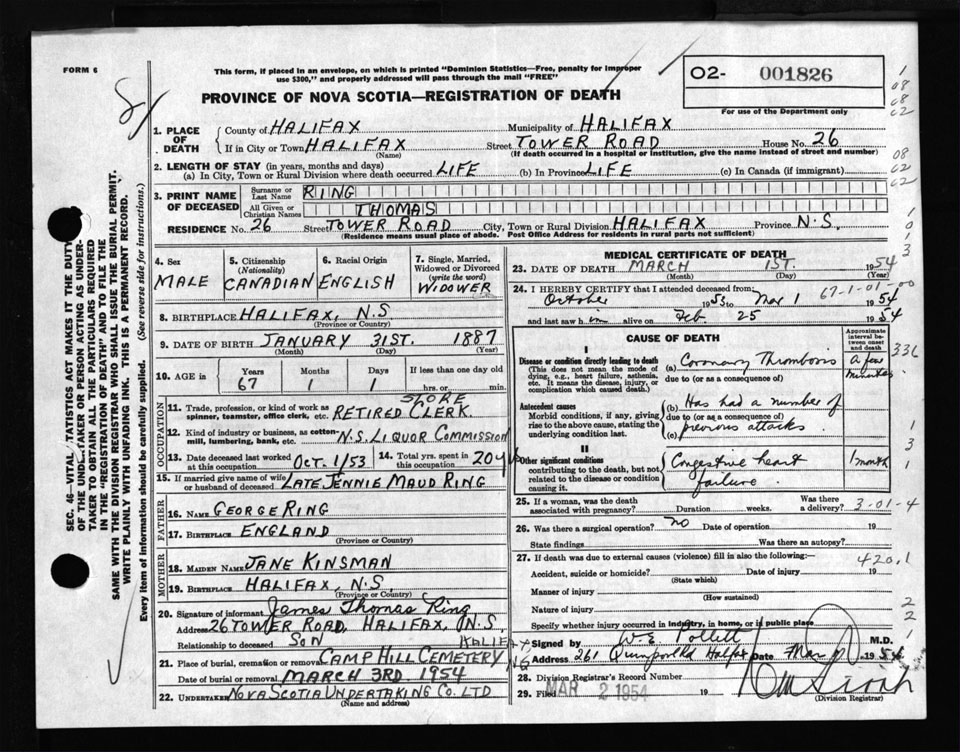 FORM 6
This form, if placed in an envelope, on which is printed "Dominion Statistics—Free, penalty for improper
use $300," and properly addressed will pass through the mail "FREE"
PROVINCE OF NOVA SCOTIA—REGISTRATION OF DEATH
02- 001826
For use of the Department only
SEC. 46—VITAL STATISTICS ACT MAKES IT THE DUTY
OF THE UNDERTAKER OR PERSON ACTING AS UNDER-
TAKER TO OBTAIN ALL THE PARTICULARS REQUIRED
IN THE "REGISTRATION OF DEATH" AND TO FILE THE
SAME WITH THE DIVISION REGISTRAR WHO SHALL ISSUE THE BURIAL PERMIT.
WRITE PLAINLY WITH UNFADING INK. THIS IS A PERMANENT RECORD.
Every item of information should be carefully supplied. (See reverse side for instructions.)
1. PLACE OF DEATH County of HALIFAX Municipality of HALIFAX
If in City or Town HALIFAX Street TOWER ROAD House No. 26
(Name) (If death occurred in a hospital or institution, give the name instead of street and number)
2. LENGTH OF STAY (in years, months and days)
(a) In City, Town or Rural Division where death occurred LIFE (b) In Province LIFE (c) In Canada (if immigrant)
3. PRINT NAME OF DECEASED Surname or Last Name RING
All Given or Christian Names THOMAS
RESIDENCE No. 26 Street TOWER ROAD City, Town or Rural Division HALIFAX Province N.S.
(Residence means usual place of abode. Post Office Address for residents in rural parts not sufficient)
4. Sex MALE
5. Citizenship (Nationality) CANADIAN
6. Racial Origin ENGLISH
7. Single, Married, Widowed or Divorced (write the word) WIDOWER
8. BIRTHPLACE HALIFAX, N.S.
(Province or Country)
9. DATE OF BIRTH JANUARY 31ST. 1887
(Month) (Day) (Year)
10. AGE in Years 67 Months 1 Days 1 If less than one day old hrs. or min.
OCCUPATION
11. Trade, profession, or kind of work as spinner, teamster, office clerk, etc. RETIRED STORE CLERK
12. Kind of industry or business, as cotton-mill, lumbering, bank, etc. N.S. LIQUOR COMMISSION
13. Date deceased last worked at this occupation OCT. 1/53 14. Total yrs. spent in this occupation 20
15. If married give name of wife or husband of deceased LATE JENNIE MAUD RING
FATHER
16. NAME GEORGE RING
17. BIRTHPLACE ENGLAND
(Province or Country)
MOTHER
18. MAIDEN NAME JANE KINSMAN
19. BIRTHPLACE HALIFAX, N.S.
(Province or Country)
20. Signature of informant James Thomas Ring
Address 26 TOWER ROAD, HALIFAX, N.S.
Relationship to deceased SON
21. Place of burial, cremation or removal CAMP HILL CEMETERY HALIFAX NS
Date of burial or removal MARCH 3RD. 1954
22. UNDERTAKER NOVA SCOTIA UNDERTAKING CO. LTD
(Name and address)
MEDICAL CERTIFICATE OF DEATH
23. DATE OF DEATH MARCH 1ST. 1954
(Month) (Day) (Year)
24. I HEREBY CERTIFY that I attended deceased from: 67-1-01-00
October 1953 to Mar 1 1954
and last saw him alive on Feb. 25 1954
CAUSE OF DEATH
Approximate interval between onset and death
I
Disease or condition directly leading to death (a) Coronary Thrombosis a few minutes
(This does not mean the mode of dying, e.g., heart failure, asthenia, etc. It means the disease, injury, or complication which caused death.)
due to (or as a consequence of)
Antecedent causes (b) Has had a number of
Morbid conditions, if any, giving rise to the above cause, stating the underlying condition last.
due to (or as a consequence of)
(c) previous attacks
II
Other significant conditions contributing to the death, but not related to the disease or condition causing it. Congestive heart failure 1 month
25. If a woman, was the death associated with pregnancy? Duration weeks. Was there a delivery? 3-01-4
26. Was there a surgical operation? no Date of operation 19
State findings Was there an autopsy?
27. If death was due to external causes (violence) fill in also the following: 420.1
Accident, suicide or homicide? Date of injury 19
(State which)
Manner of injury
(How sustained)
Nature of injury
Specify whether injury occurred in industry, in home, or in public place
Signed by W.E. Pollett M.D.
Address 261 Quinpool Rd Halifax Date Mar 1954
28. Division Registrar's Record Number
29. Filed MAR 2 1954 19
(Division Registrar)